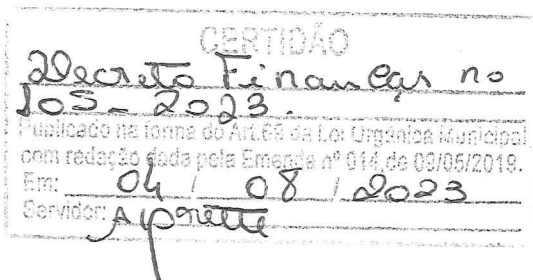 CERTIDÃO
Decreto Finanças no
105-2023.
Publicado na forma do Art.69 da Lei Orgânica Municipal,
com redação dada pela Emenda nº 014 de 09/05/2019.
Em: 04 / 08 / 2023
Servidor: